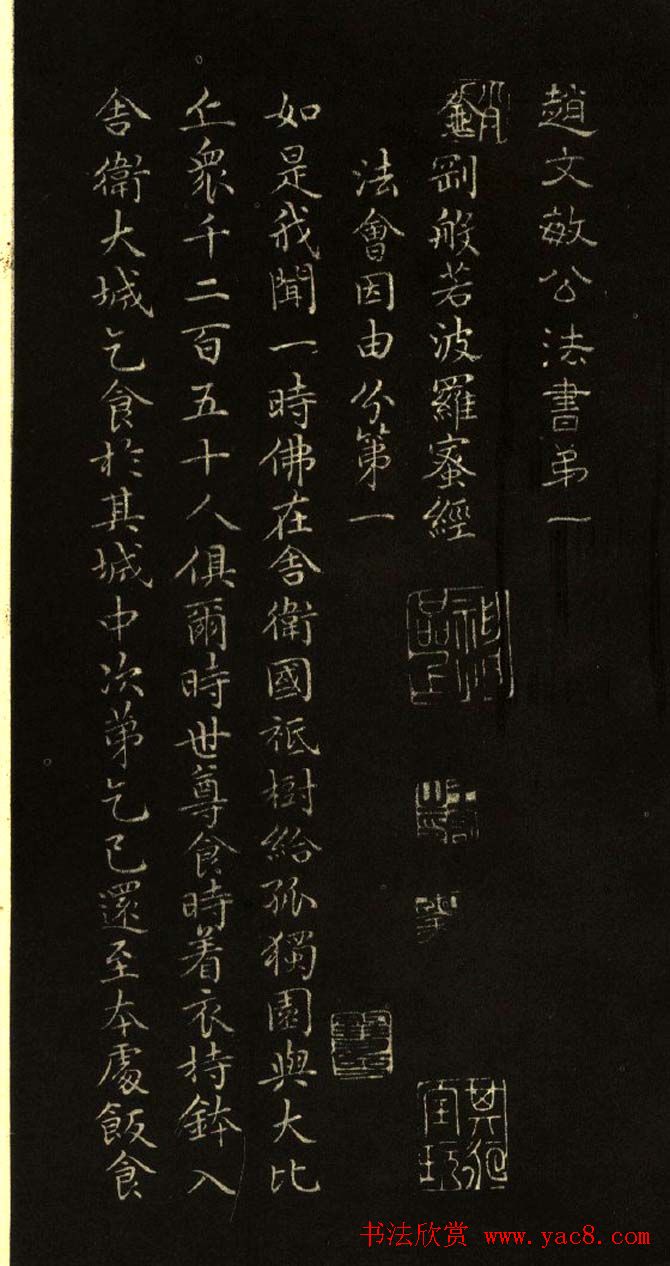 趙文敏公法書弟一
金剛般若波羅蜜經
法會因由分第一
如是我聞一時佛在舍衛國祇樹給孤獨園與大比
丘眾千二百五十人俱爾時世尊食時着衣持鉢入
舍衛大城乞食於其城中次第乞已還至本處飯食
书法欣赏 www.yac8.com